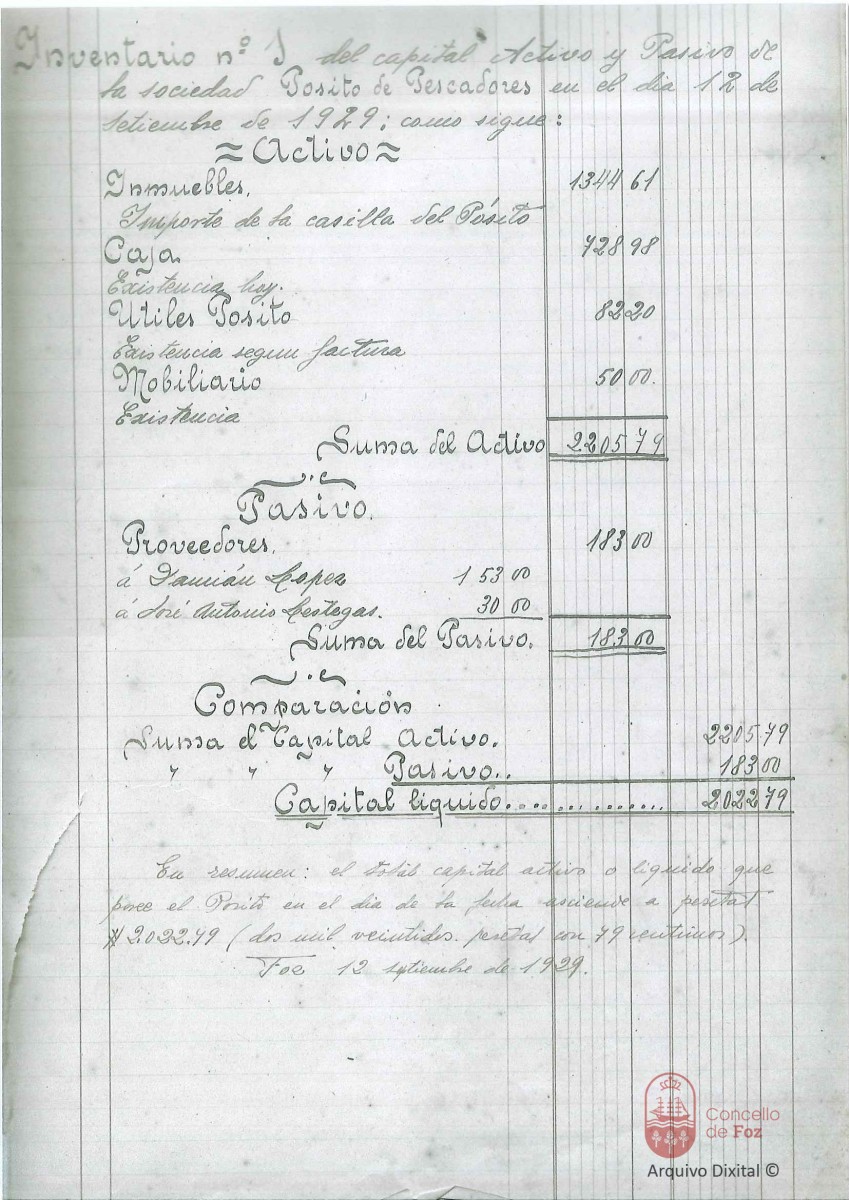 Inventario nº 1 del capital Activo y Pasivo de
la sociedad Posito de Pescadores en el dia 12 de
Setiembre de 1929; como sigue:
= Activo =
Inmuebles. 1344 61
Importe de la casilla del Pósito
Caja. 728 98
Existencia hoy.
Utiles Posito 82 20
Existencia segun factura
Mobiliario 50 00.
Existencia
Suma del Activo 2205 79
Pasivo.
Proveedores. 183 00
á Damián Lopez 153 00
á José Antonio 30 00
Suma del Pasivo. 183 00
Comparación
Suma el Capital Activo. 2205 79
" " " Pasivo.. 183 00
Capital liquido................ 2022 79
En resumen: el total capital activo o liquido que
posee el Posito en el dia de la fecha asciende a pesetas
# 2.022.79 (dos mil veintidos pesetas con 79 centimos).
Foz 12 setiembre de 1929.
Concello
de Foz
Arquivo Dixital ©